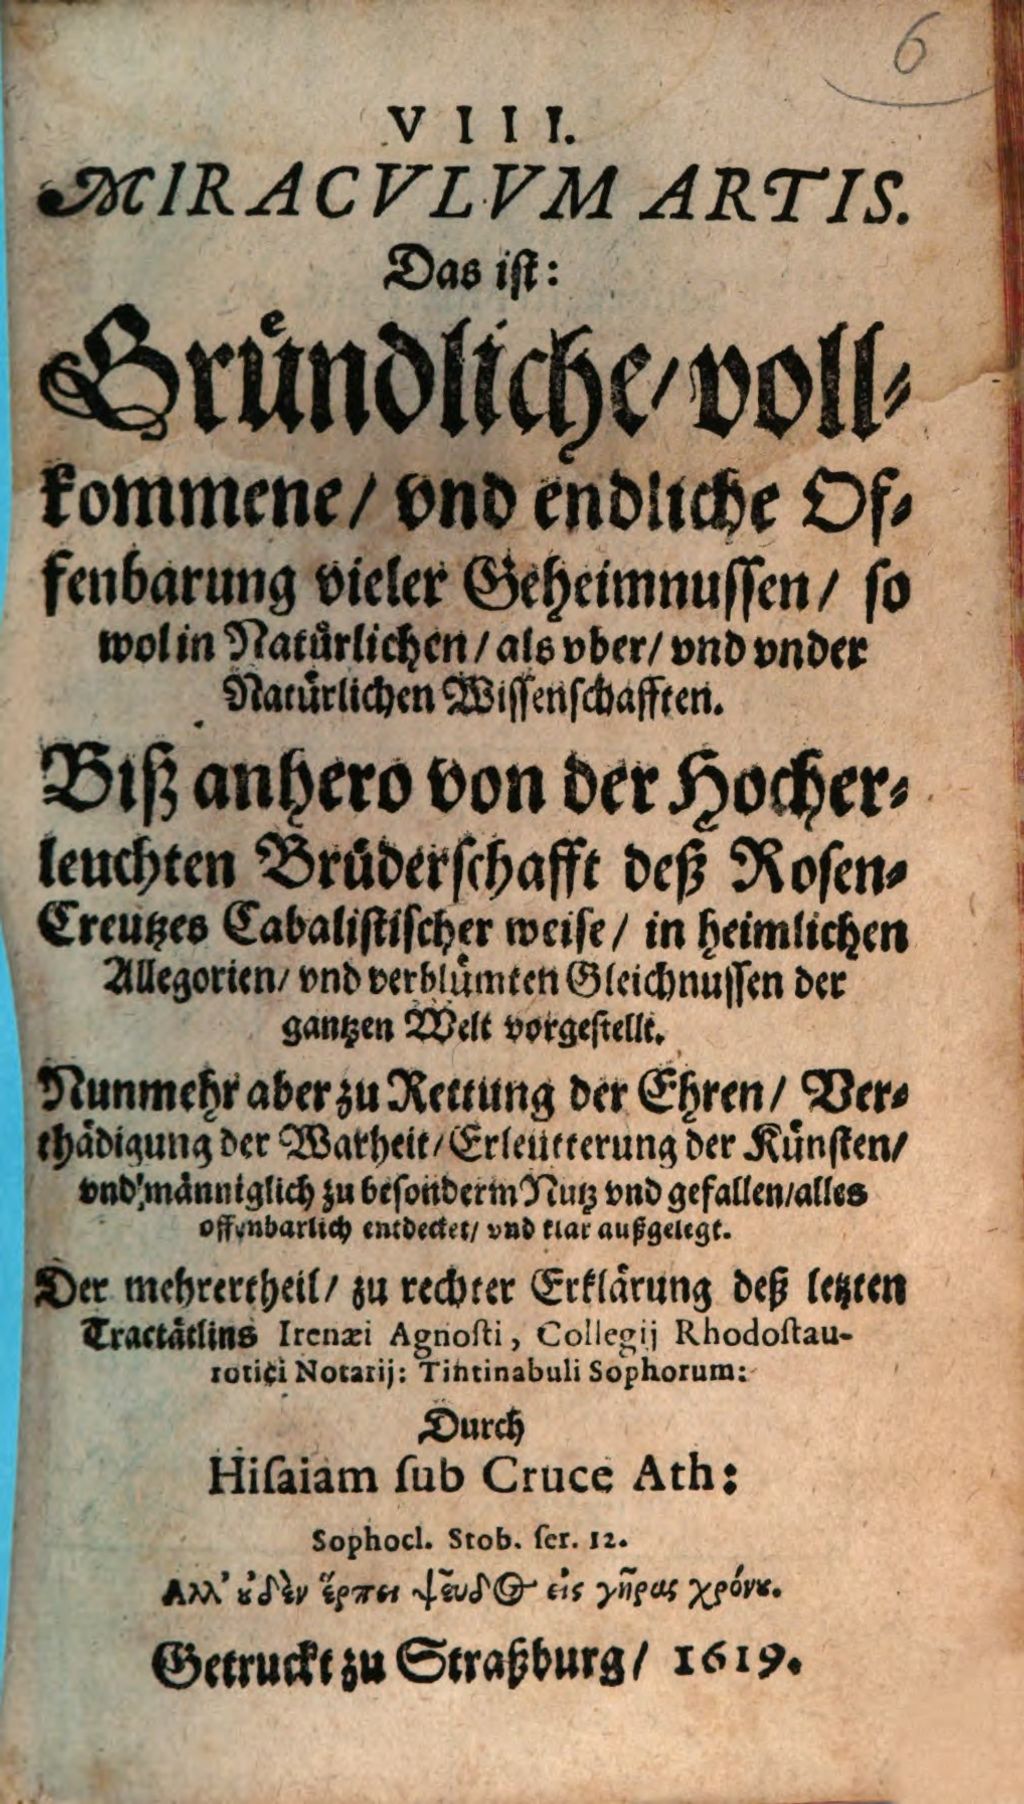 6
VIII.
MIRACVLVM ARTIS.
Das ist:
Gruͤndliche/voll⸗
kommene/ vnd endliche Of⸗
fenbarung vieler Geheimnussen/ so
wol in Natuͤrlichen/ als vber/ vnd vnder
Natuͤrlichen Wissenschafften.
Biß anhero von der Hocher⸗
leuchten Bruͤderschafft deß Rosen⸗
Creutzes Cabalistischer weise/ in heimlichen
Allegorien/ vnd verbluͤmten Gleichnussen der
gantzen Welt vorgestellt.
Nunmehr aber zu Rettung der Ehren/ Ver⸗
thaͤdigung der Warheit/Erleutterung der Kuͤnsten/
vnd maͤnniglich zu besonderm Nutz vnd gefallen/alles
offenbarlich entdecket/ vnd klar außgelegt.
Der mehrertheil/ zu rechter Erklaͤrung deß letzten
Tractaͤtlins Irenæi Agnoſti, Collegij Rhodoſtau-
rotici Notarij: Tintinabuli Sophorum:
Durch
Hiſaiam ſub Cruce Ath:
Sophocl. Stob. ſer. 12.
Ἀλλ' ȣ̓δὲν ἕρπει ψεῦδος εἰς γῆρας χρόνȣ.
Getruckt zu Straßburg/ 1619.